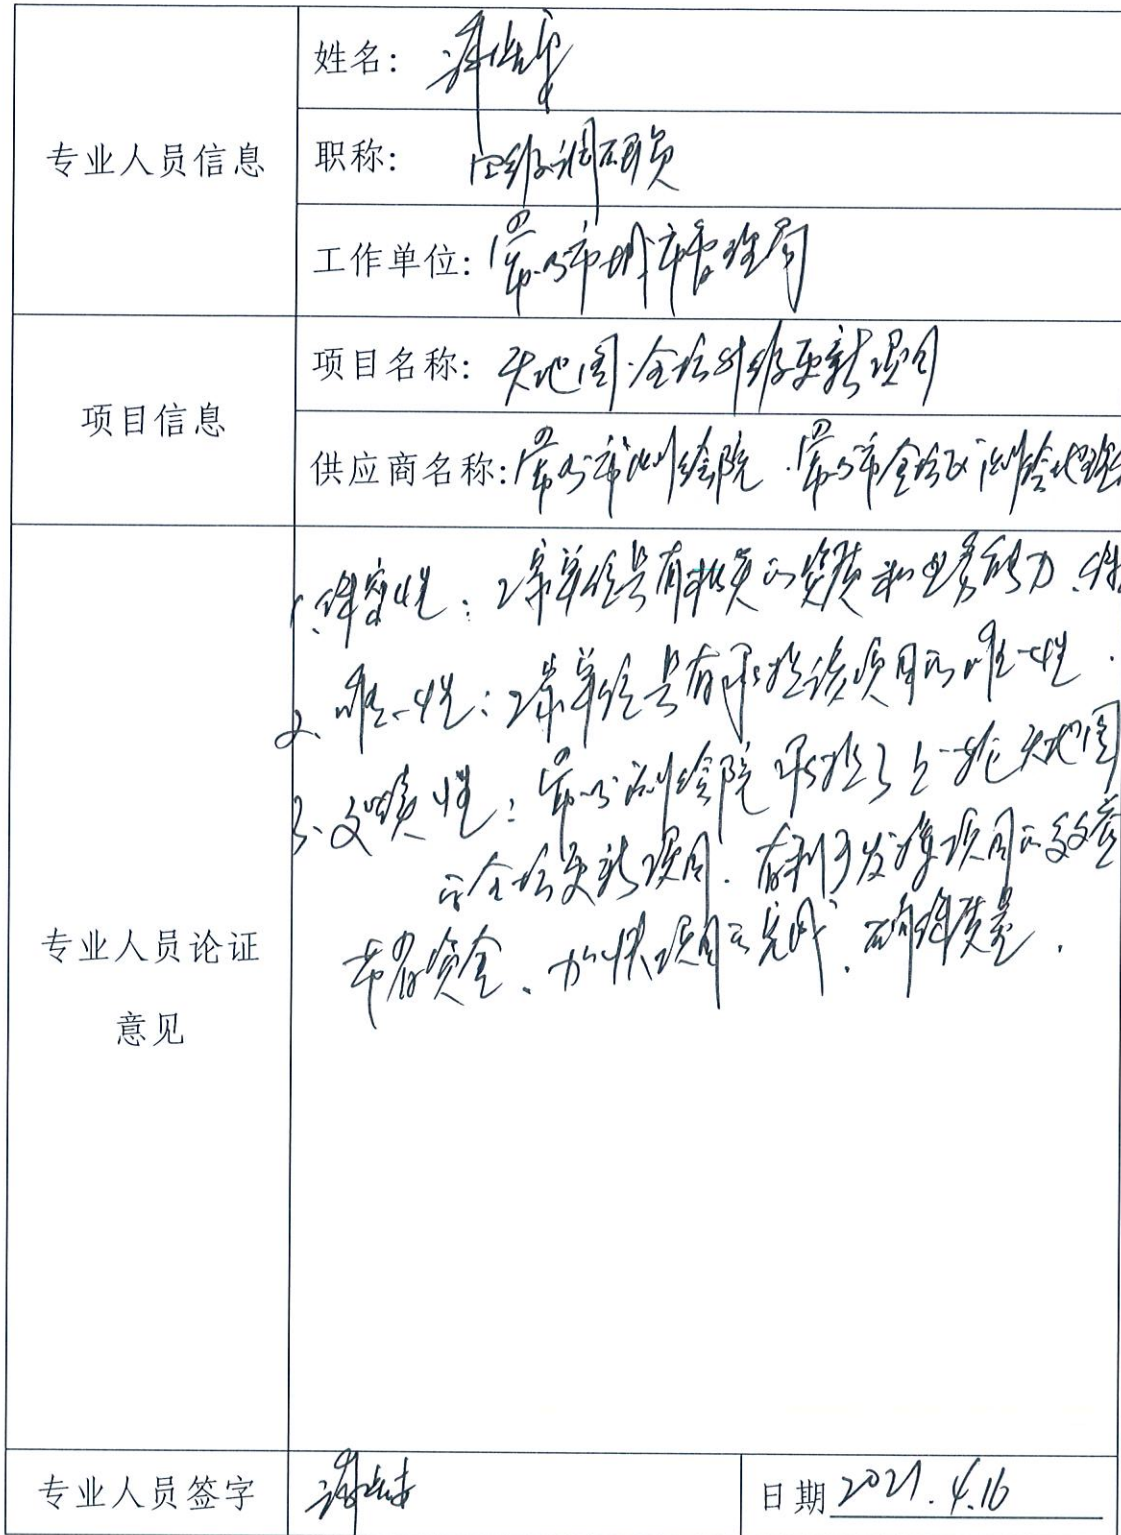 专业人员信息
姓名:
职称: 四级调研员
工作单位: 常州市城市管理局
项目信息
项目名称: 天地图·金坛升级更新项目
供应商名称: 常州市测绘院、常州市金坛区测绘地理
专业人员论证
意见
1、保密性:2家单位具有相关的资质和业务能力、
2、唯一性:2家单位具有承担该项目的唯一性.
3、延续性:常州测绘院承担了上一轮天地图
的金坛更新项目.有利于发挥项目的效益
节省资金、加快项目的完成、确保质量.
专业人员签字
日期 2021.4.16